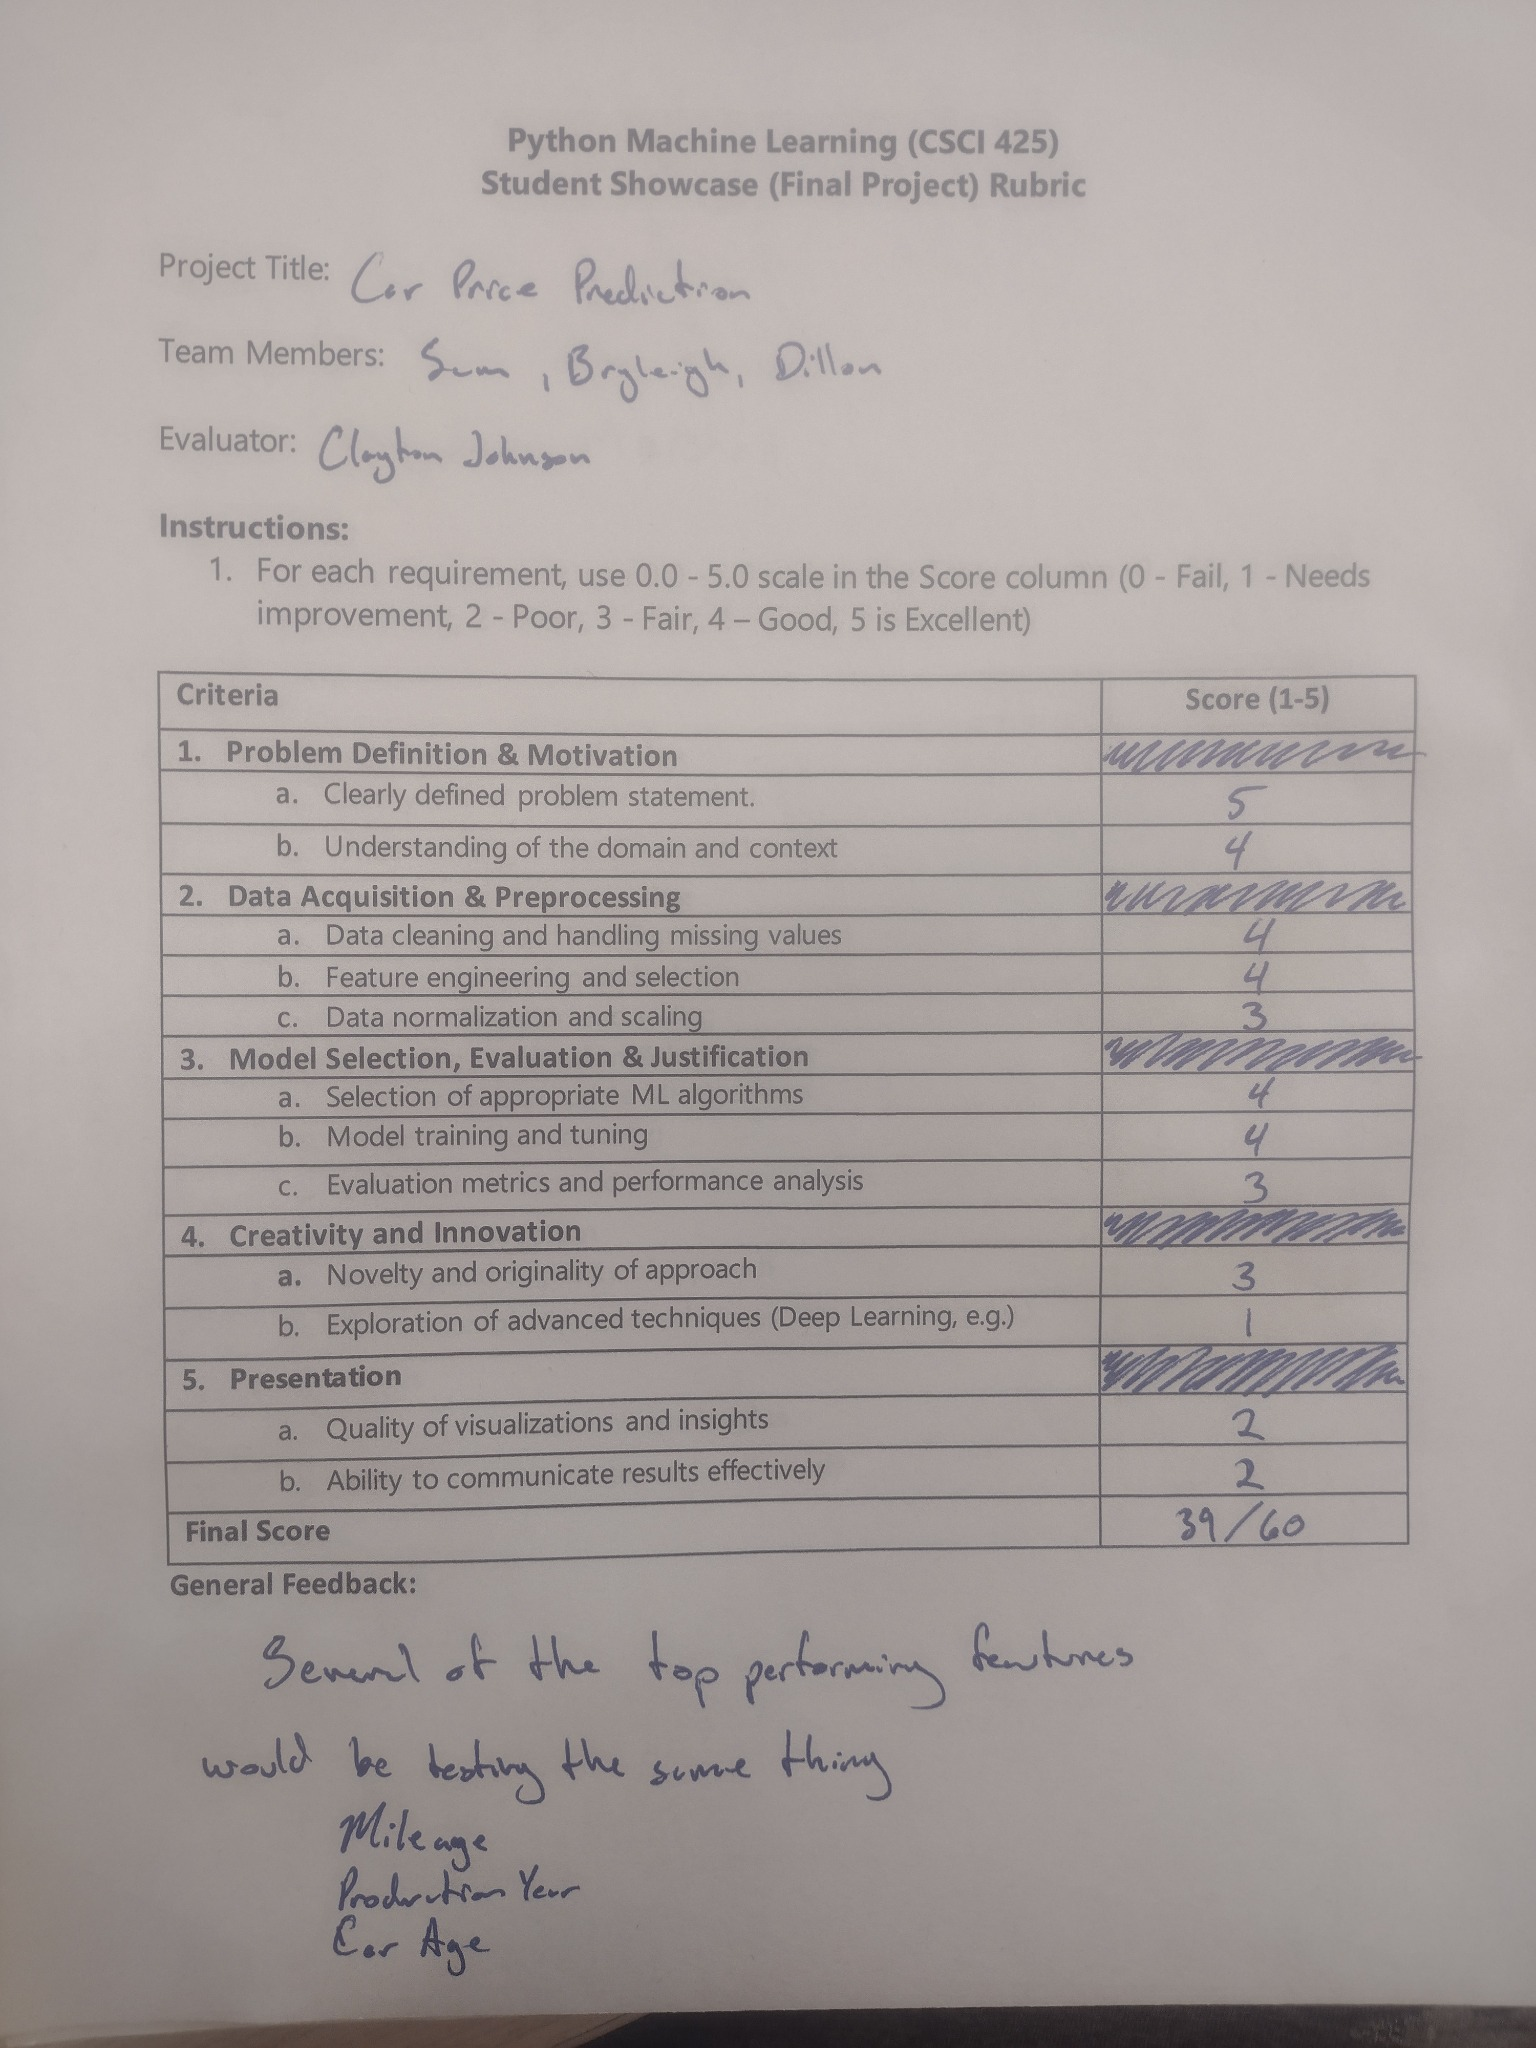 Python Machine Learning (CSCI 425)
Student Showcase (Final Project) Rubric
Project Title: Car Price Prediction
Team Members: Sam, Bryleigh, Dillon
Evaluator: Clayton Johnson
Instructions:
1. For each requirement, use 0.0 - 5.0 scale in the Score column (0 - Fail, 1 - Needs
improvement, 2 - Poor, 3 - Fair, 4 – Good, 5 is Excellent)
Criteria Score (1-5)
1. Problem Definition & Motivation
a. Clearly defined problem statement. 5
b. Understanding of the domain and context 4
2. Data Acquisition & Preprocessing
a. Data cleaning and handling missing values 4
b. Feature engineering and selection 4
c. Data normalization and scaling 3
3. Model Selection, Evaluation & Justification
a. Selection of appropriate ML algorithms 4
b. Model training and tuning 4
c. Evaluation metrics and performance analysis 3
4. Creativity and Innovation
a. Novelty and originality of approach 3
b. Exploration of advanced techniques (Deep Learning, e.g.) 1
5. Presentation
a. Quality of visualizations and insights 2
b. Ability to communicate results effectively 2
Final Score 39/60
General Feedback:
Several of the top performing features
would be testing the same thing
Mileage
Production Year
Car Age